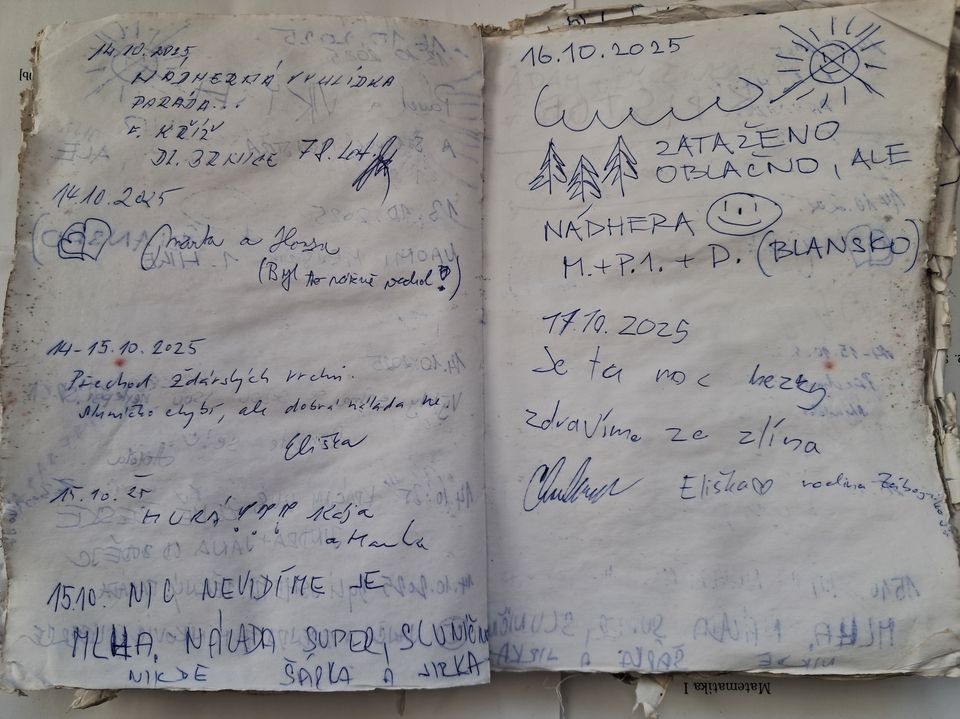 14.10.2025
NÁDHERNÁ VYHLÍDKA
PARÁDA...
F. KŘÍŽ
78. Let.
14.10.2025
Marta a Honza
(Byl to
14-15.10.2025
Přechod Žďárských vrchů.
Sluníčko chybí, ale dobrá nálada ne.
Eliška
15.10.25
HURÁ !!! Kája
a Marka
15.10. NIC NEVIDÍME JE
MLHA, NÁLADA SUPER, SLUNIČKO
NIKDE ŠÁRKA A JIRKA
16.10.2025
ZATAŽENO
OBLAČNO, ALE
NÁDHERA
M.+P.1.+ D. (BLANSKO)
17.10.2025
Je tu moc hezky
zdravíme ze zlína
Eliška♡ rodina
Matematika I